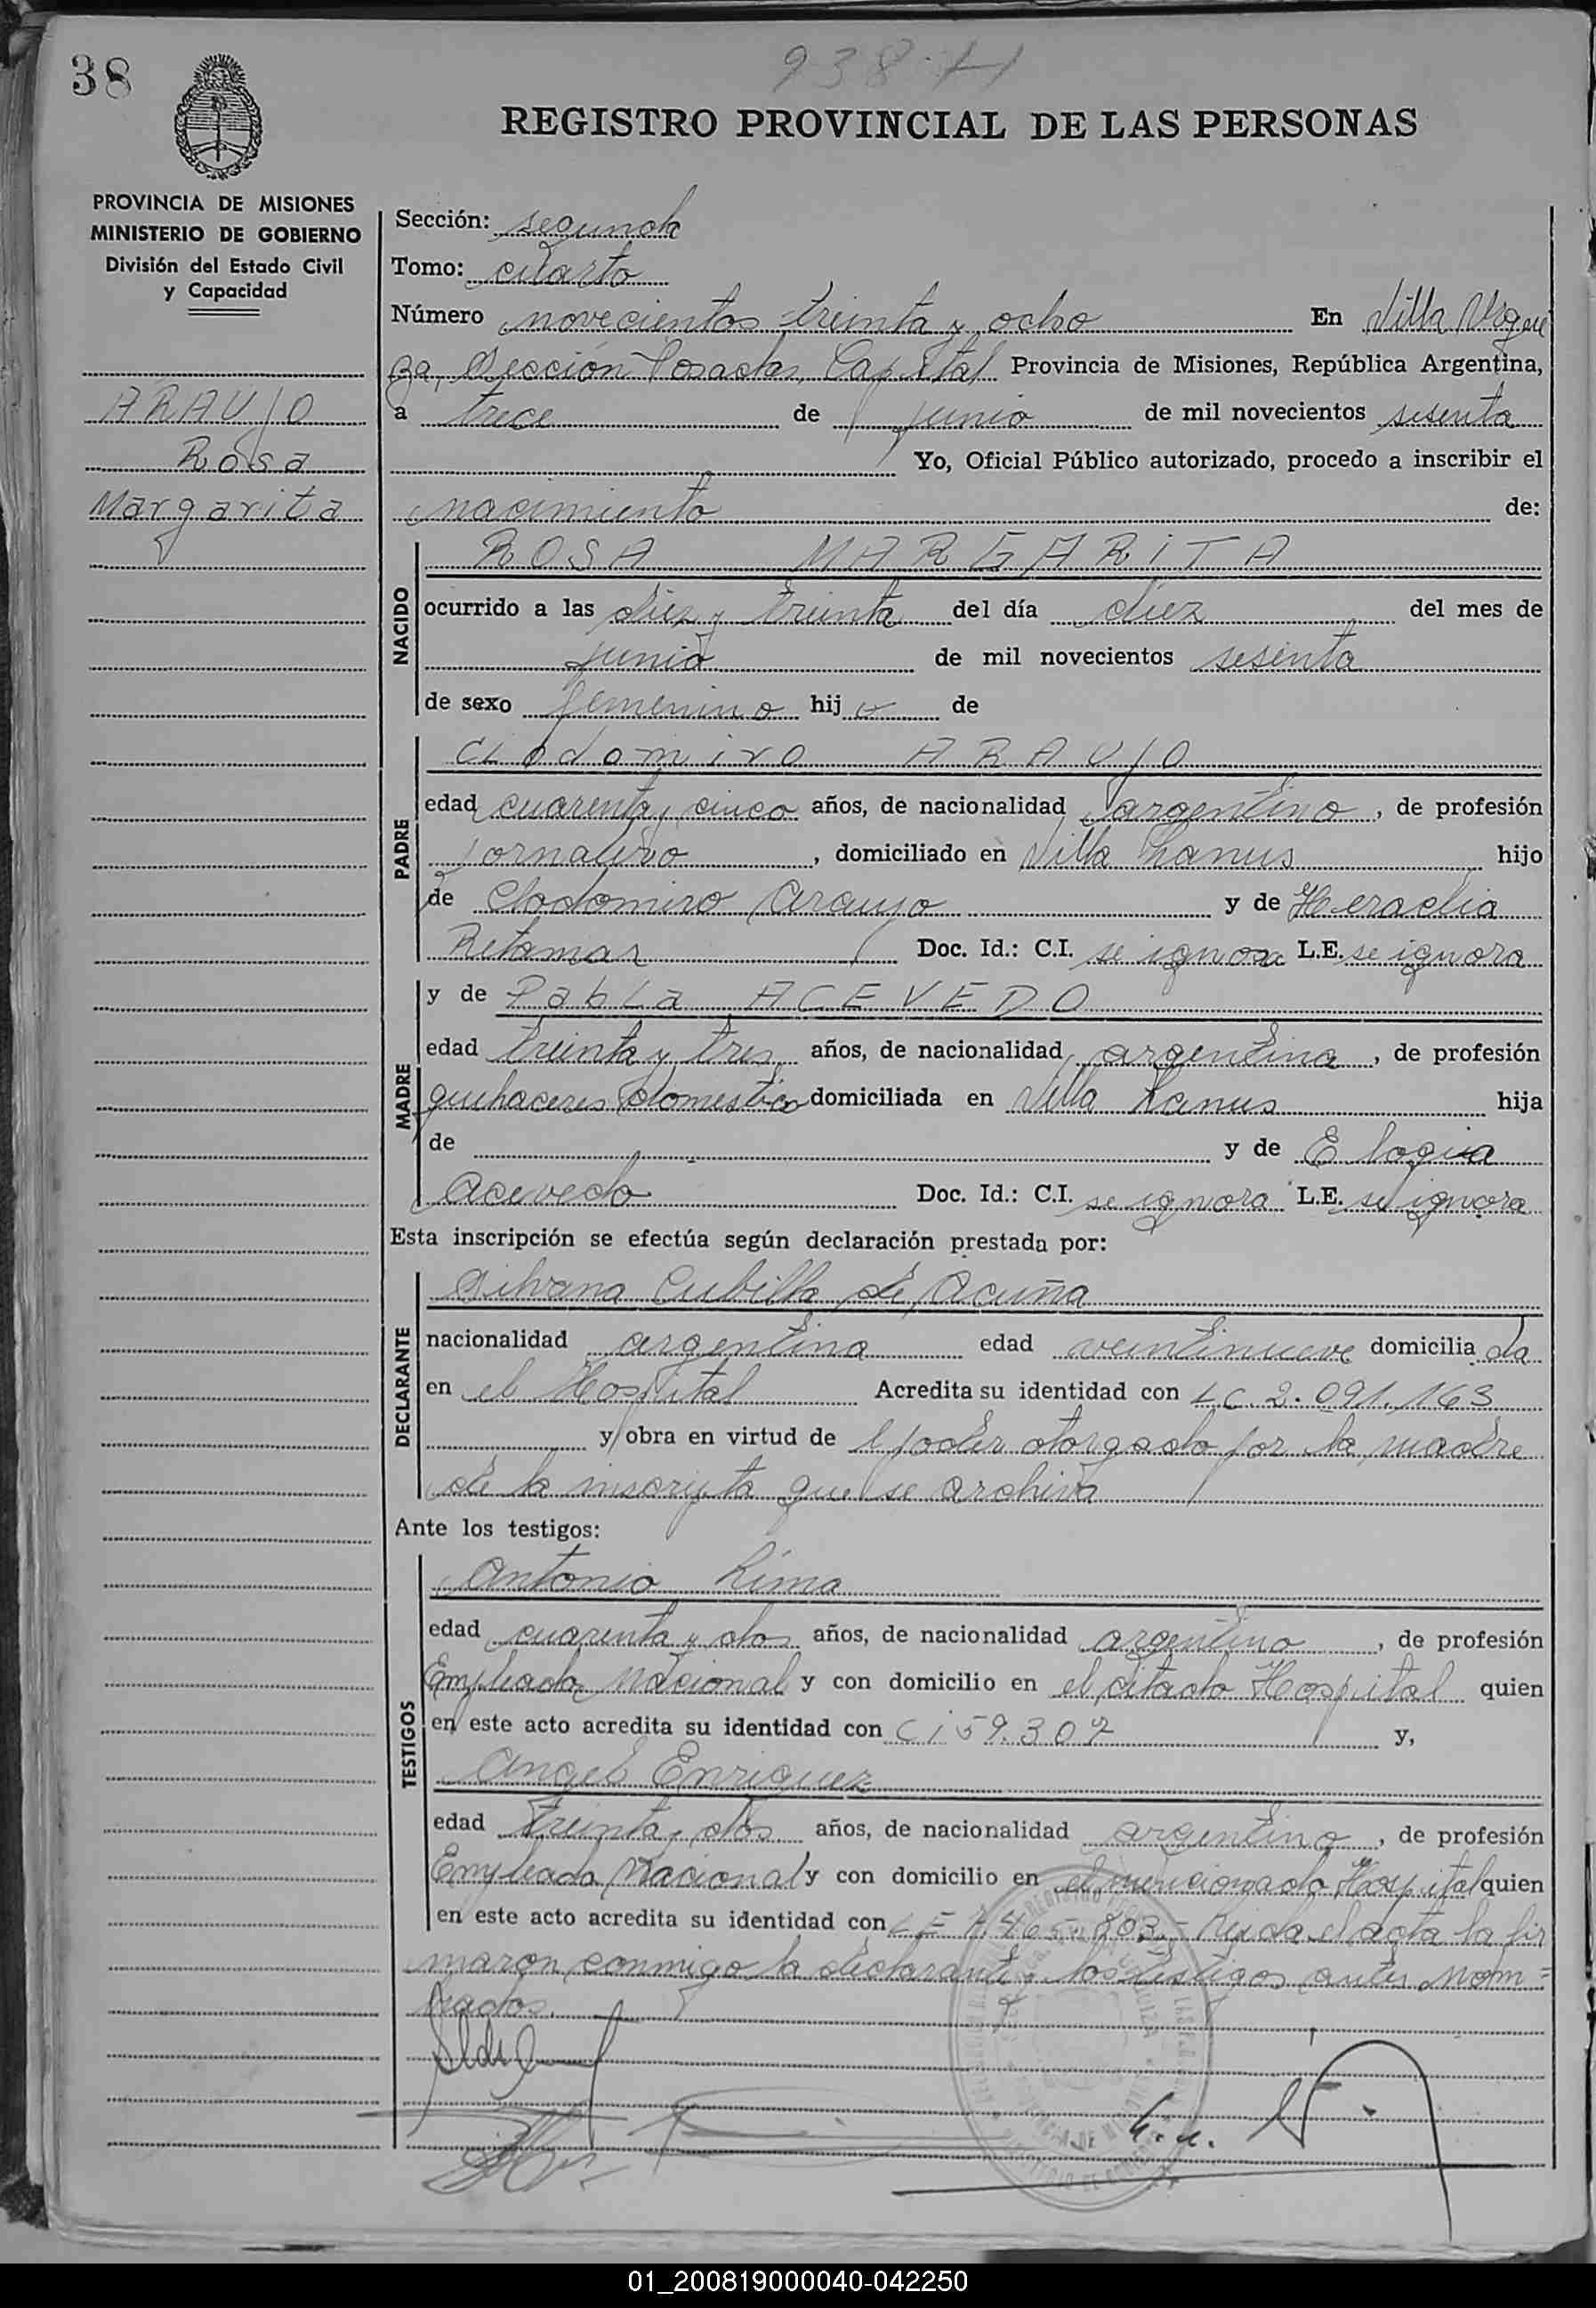 38
938 H
REGISTRO PROVINCIAL DE LAS PERSONAS
PROVINCIA DE MISIONES
MINISTERIO DE GOBIERNO
División del Estado Civil
y Capacidad
ARAUJO
Rosa
Margarita
Sección: segunda
Tomo: cuarto
Número novecientos treinta y ocho En Villa Urque
za, Sección Posadas, Capital Provincia de Misiones, República Argentina,
a trece de junio de mil novecientos sesenta
Yo, Oficial Público autorizado, procedo a inscribir el
nacimiento de:
NACIDO
ROSA MARGARITA
ocurrido a las diez y treinta del día diez del mes de
junio de mil novecientos sesenta
de sexo femenino hij a de
PADRE
Clodomiro ARAUJO
edad cuarenta y cinco años, de nacionalidad argentino, de profesión
jornalero, domiciliado en Villa Lanus hijo
de Clodomiro Araujo y de Heraclia
Retamar Doc. Id.: C.I. se ignora L.E. se ignora
MADRE
y de Pabla ACEVEDO
edad treinta y tres años, de nacionalidad argentina, de profesión
quehaceres domestico domiciliada en Villa Lanus hija
de y de Elogia
Acevedo Doc. Id.: C.I. se ignora L.E. se ignora
Esta inscripción se efectúa según declaración prestada por:
DECLARANTE
Silvana Cubilla de Acuña
nacionalidad argentina edad veintinueve domicilia da
en el Hospital Acredita su identidad con LC 2.091.163
y obra en virtud de l poder otorgado por la madre
de la inscripta que se archiva
Ante los testigos:
TESTIGOS
Antonio Lima
edad cuarenta y dos años, de nacionalidad argentino, de profesión
Empleado Nacional y con domicilio en el citado Hospital quien
en este acto acredita su identidad con CI 59.307 y,
Angel Enriquez
edad treinta y dos años, de nacionalidad argentino, de profesión
Empleado Nacional y con domicilio en el mencionado Hospital quien
en este acto acredita su identidad con LE 7.465.803.- Leida el acta la fir
maron conmigo la declarante y los testigos antes nom=
brados.
01_200819000040-042250